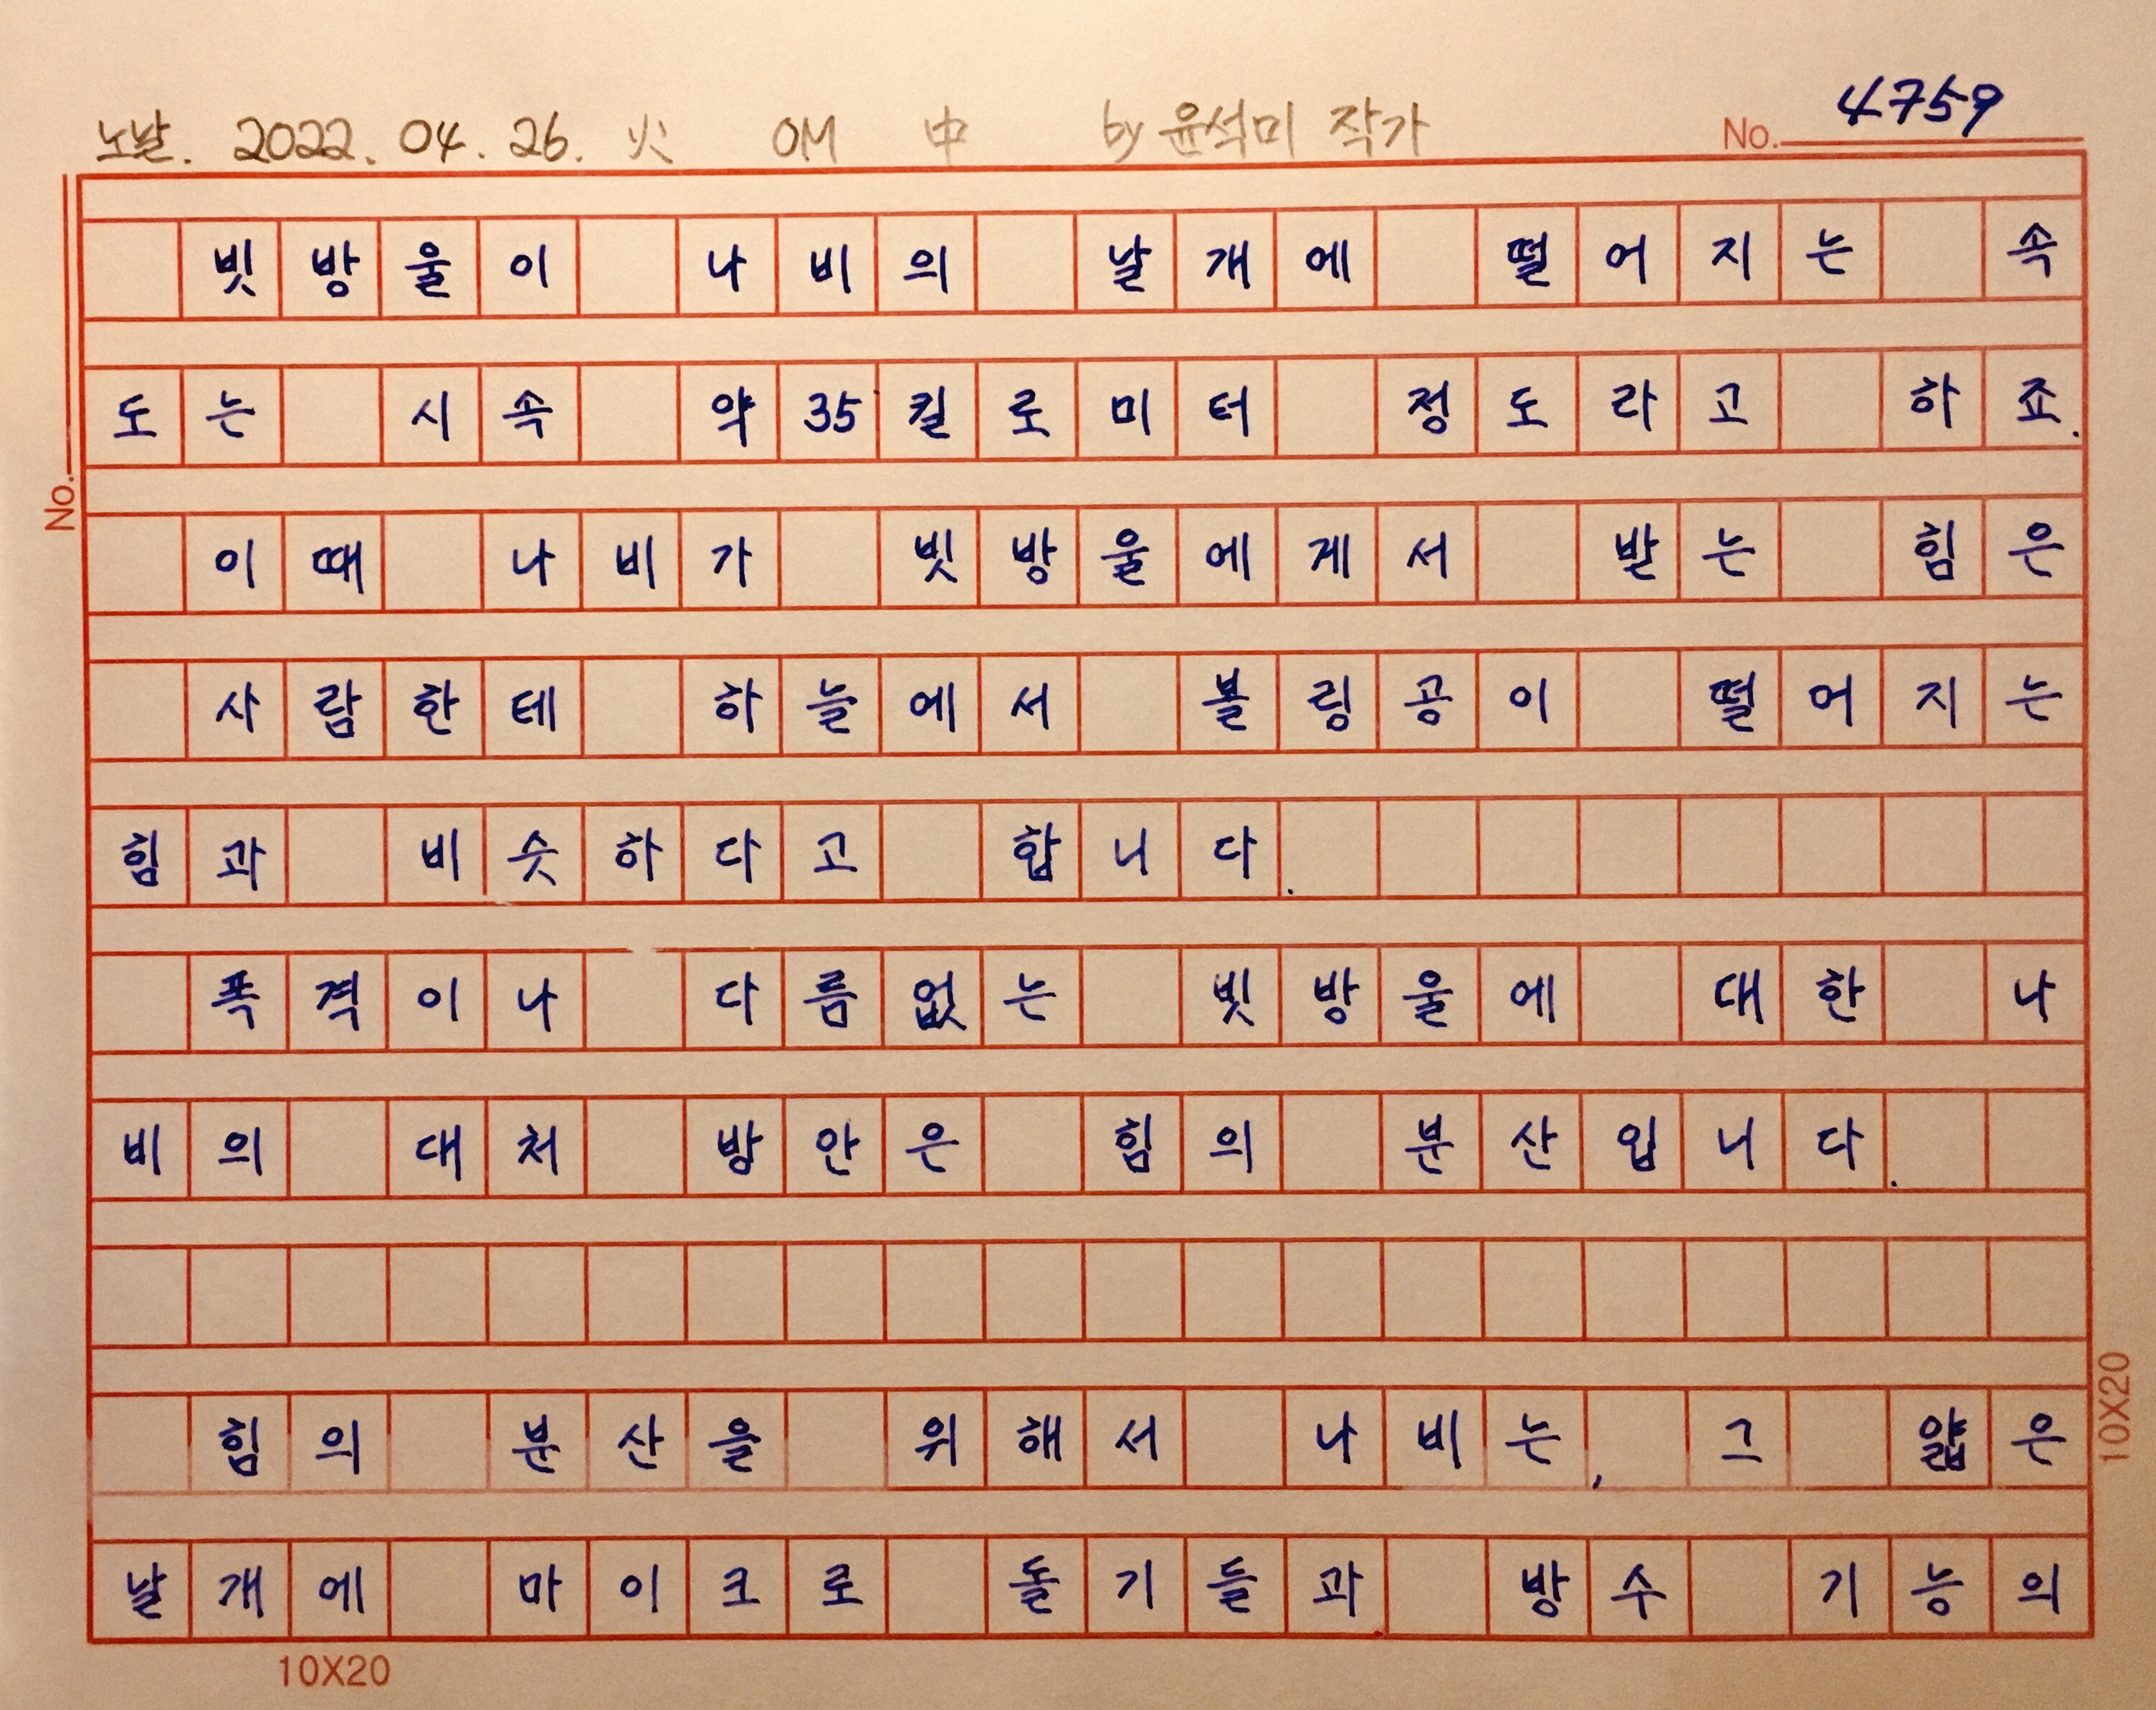 노날. 2022. 04. 26. 火 OM 中 by 윤석미 작가
No. 4759
빗방울이 나비의 날개에 떨어지는 속
도는 시속 약35킬로미터 정도라고 하죠.
No.
이때 나비가 빗방울에게서 받는 힘은
사람한테 하늘에서 볼링공이 떨어지는
힘과 비슷하다고 합니다.
폭격이나 다름없는 빗방울에 대한 나
비의 대처 방안은 힘의 분산입니다.
힘의 분산을 위해서 나비는, 그 얇은
날개에 마이크로 돌기들과 방수 기능의
10X20
10X20